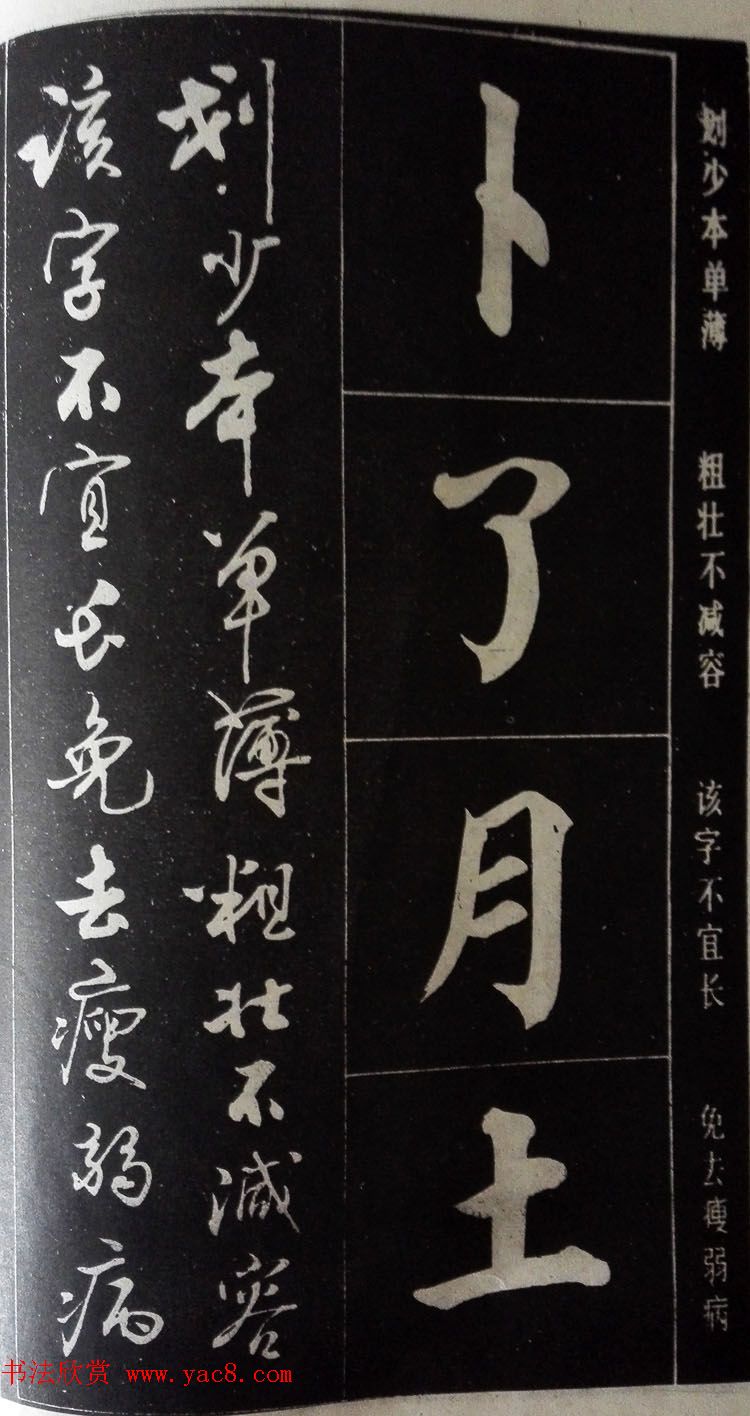 划少本单薄 粗壮不减容 该字不宜长 免去瘦弱病
卜
了
月
土
划少本单薄粗壮不减容
该字不宜长免去瘦弱病
书法欣赏 www.yac8.com